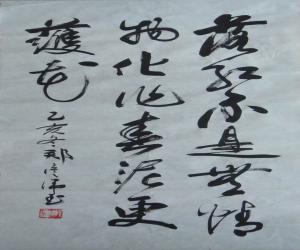 落红不是无情
物化作春泥更
护花
乙亥冬